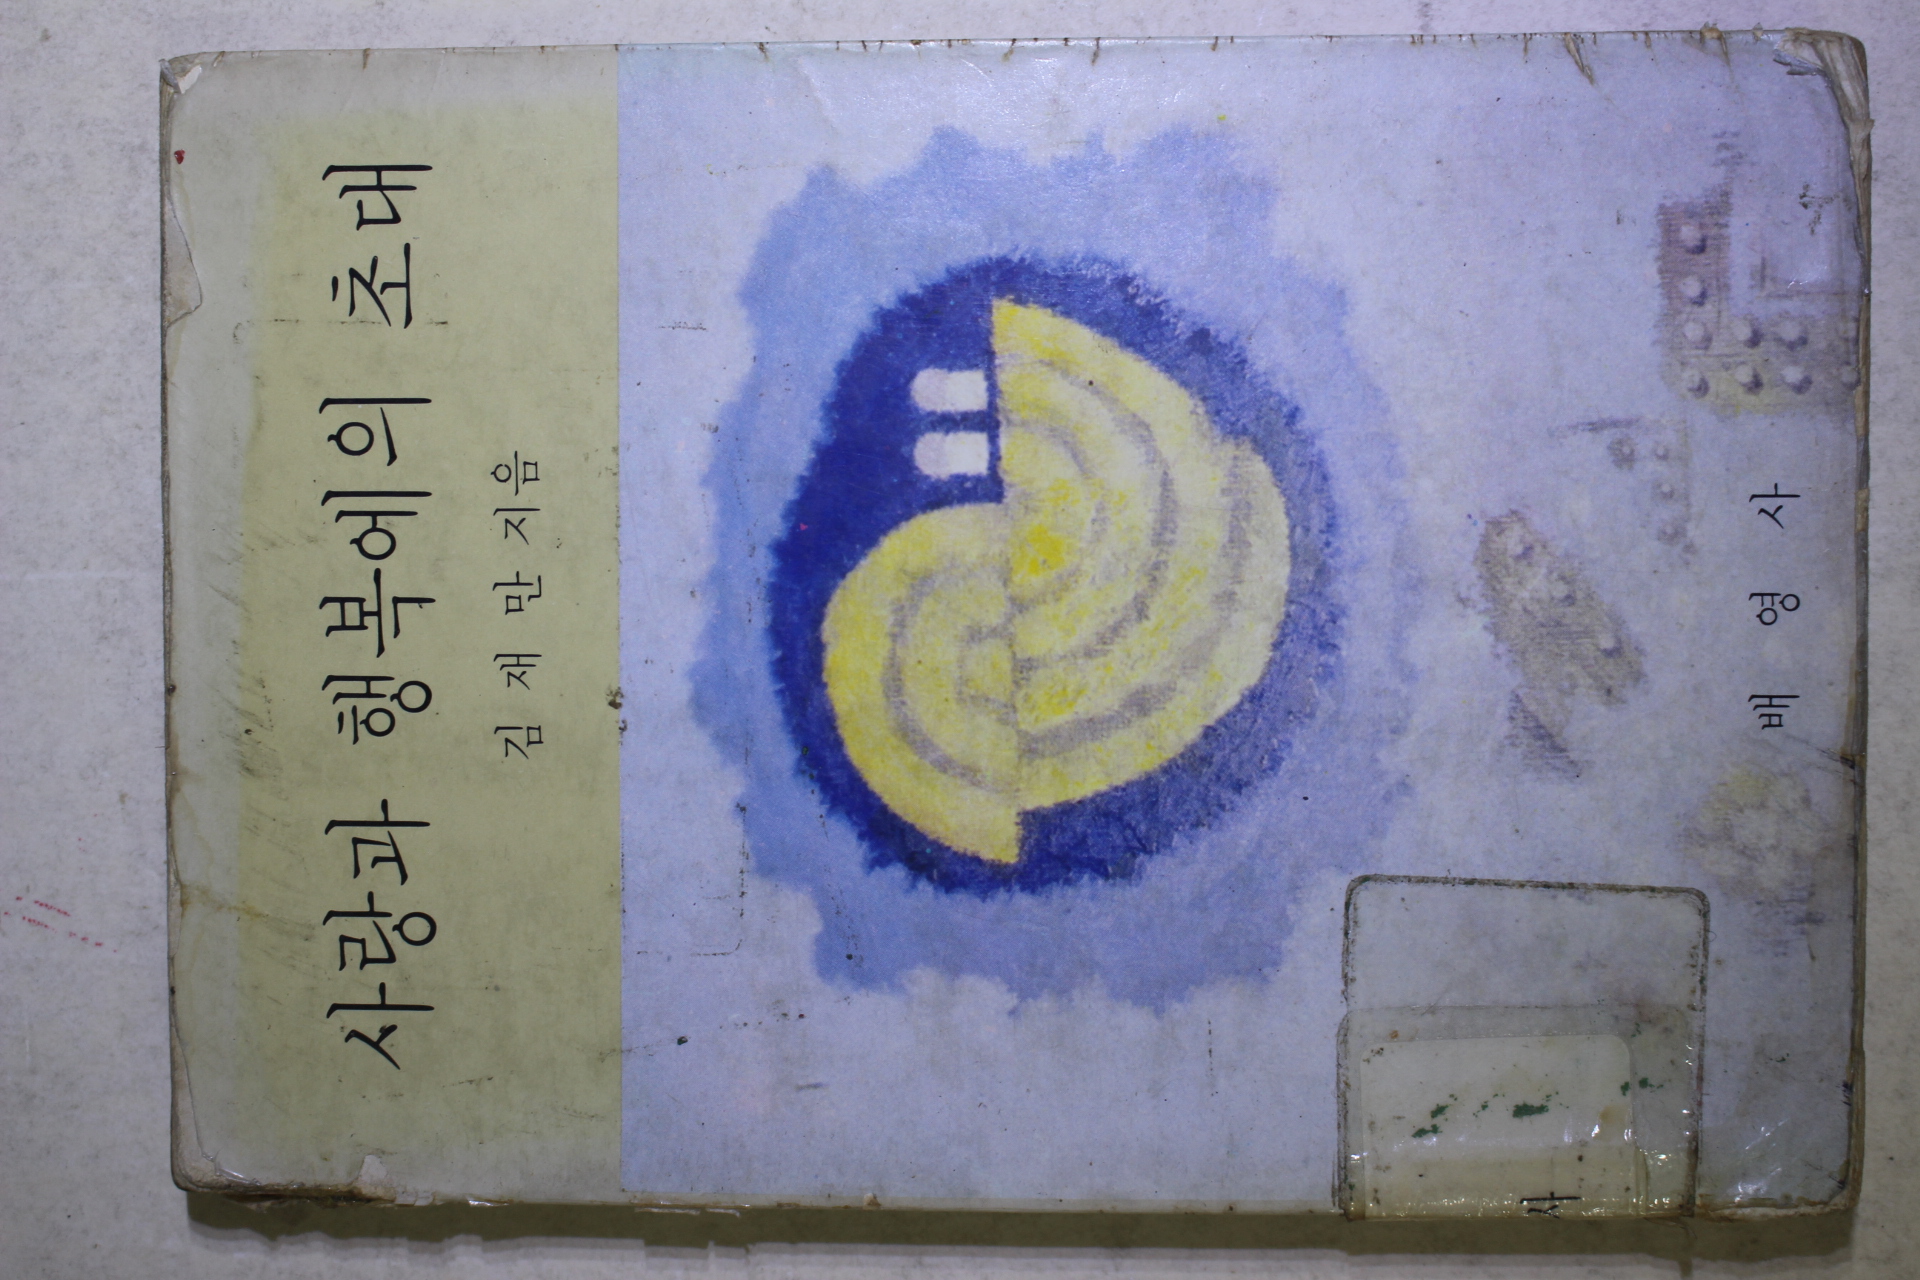 사랑과 행복에의 초대
김재만 지음
배영사
사